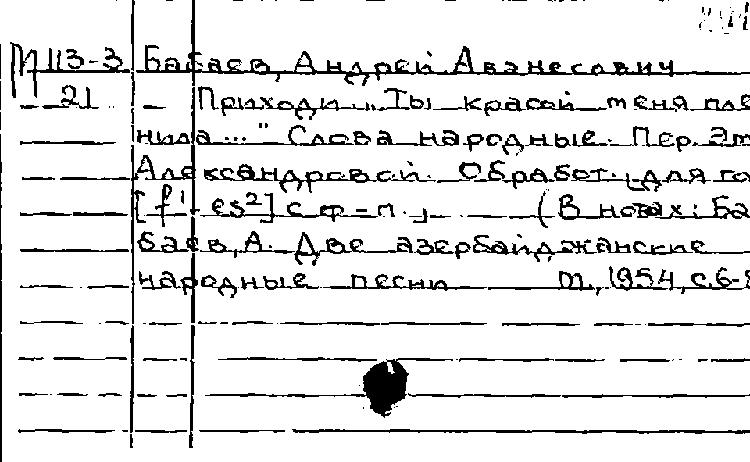 М113-3 Бабаев, Андрей Аванесович
21 Приходи „Ты красой меня пле
нила..." Слова народные. Пер. Эм.
Александровой. Обработ. для го
[f¹-es²] с ф-п. (В нотах: Ба
баев, А. Две азербайджанские
народные песни М., 1954, с.6-8